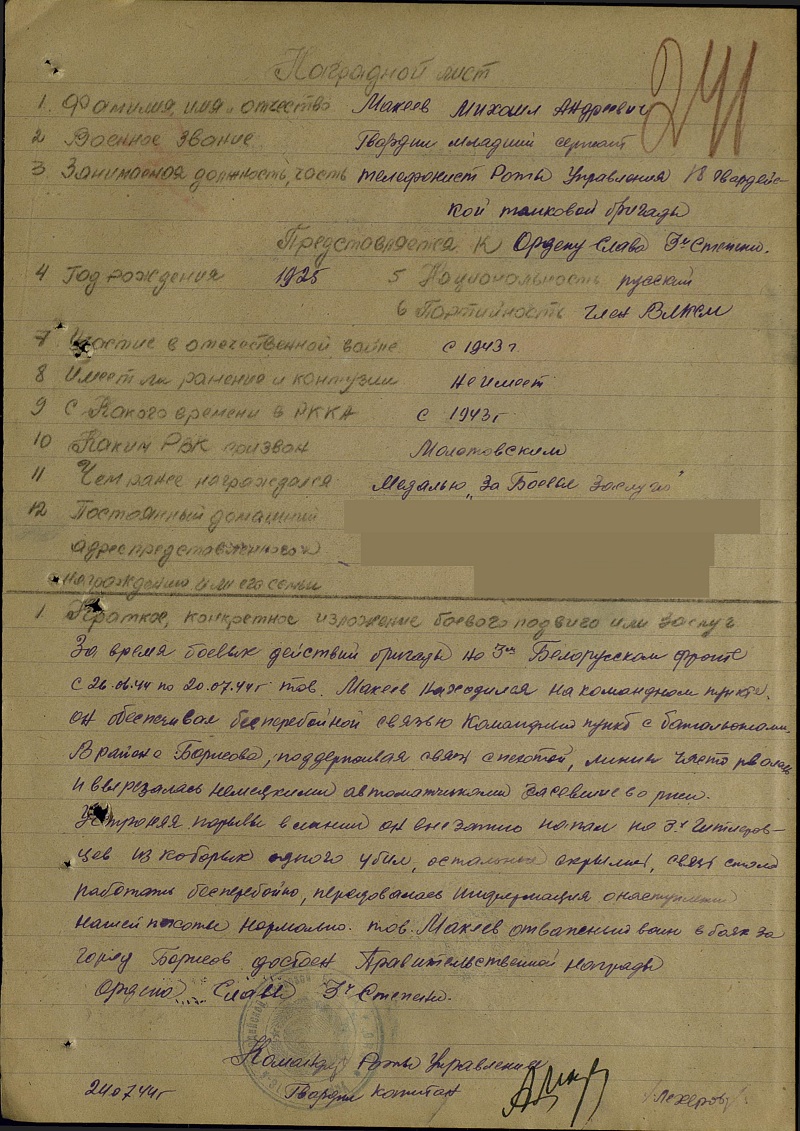 241
Наградной лист
1. Фамилия, имя и отчество Макеев Михаил Андреевич
2 Военное звание Гвардии младший сержант
3. Занимаемая должность, часть телефонист Роты Управления 18 Гвардейс-
кой танковой бригады
Представляется к Ордену Слава 3й Степени.
4 Год рождения 1925 5 Национальность русский
6 Партийность член ВЛКСМ
7 Участие в отечественной войне с 1943 г
8 Имеет ли ранение и контузии Не имеет
9 С Какого времени в РККА с 1943 г
10 Каким РВК призван Молотовским
11 Чем ранее награждался Медалью „За Боевые Заслуги"
12 Постоянный домашний
адрес представленного к
награждению или его семьи
1. Краткое, конкретное изложение боевого подвига или заслуг
За время боевых действий бригады на 3ем Белорусском фронте
с 26.06.44 по 20.07.44 г тов. Макеев находился на командном пункте.
он обеспечивал бесперебойной связью Командный пункт с батальонами.
В районе Борисова, поддерживая связь с пехотой, линия часто рвалась
и вырезалась немецкими автоматчиками засевшие во ржи.
Устраняя порывы в линии он внезапно напал на 3х Гитлеров-
цев из которых одного убил, остальные скрылись, связь стала
работать бесперебойно, передавалась Информация о наступлении
нашей пехоты нормально. тов. Макеев отважный воин в боях за
город Борисов достоен Правительственной награды
ордена Славы 3й Степени.
Командир Роты Управления
24.07.44 г Гвардии капитан